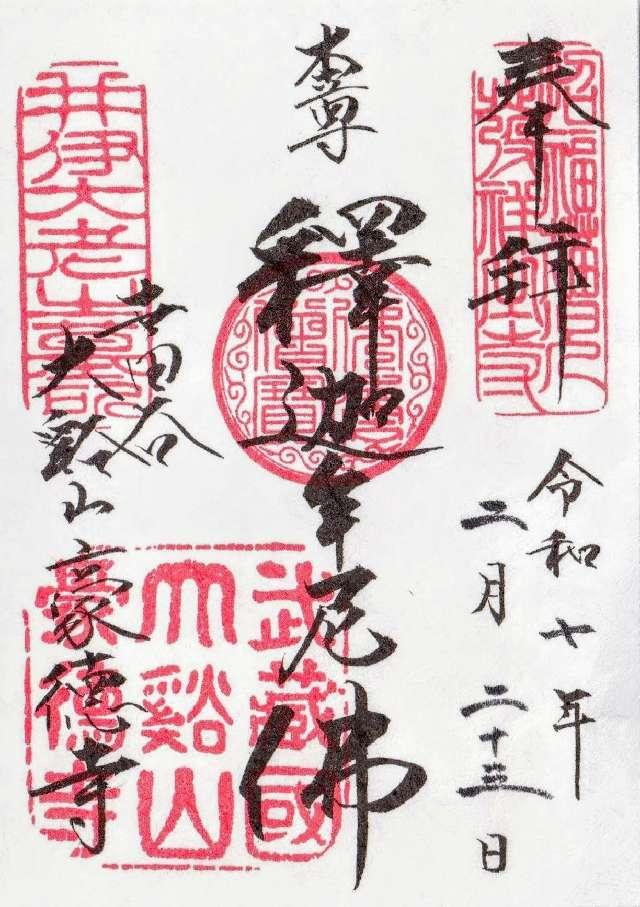 奉拝
招福猫児
發祥之寺
令和七年
二月二十三日
本尊
釋迦牟尼佛
佛法
僧寶
武蔵國
大谿山
豪徳寺
世田谷
大谿山豪徳寺
井伊大老